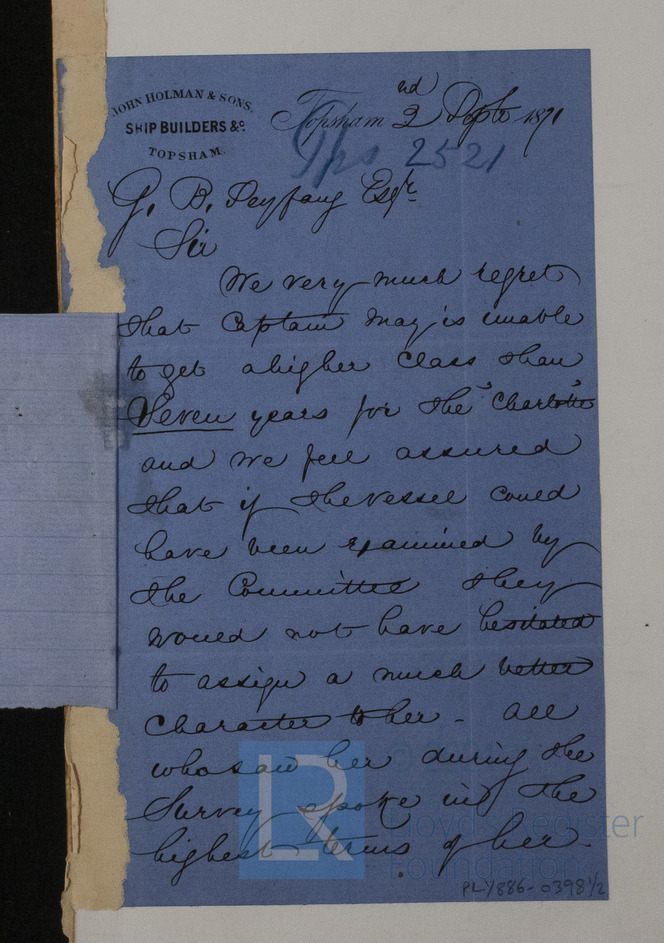 JOHN HOLMAN & SONS,
SHIP BUILDERS &c
TOPSHAM.
Topsham 2nd Septr 1871
Ips 2521
G. B. Seyfang Esqr
Sir
We very much regret
that Captain May is unable
to get a higher class than
Seven years for the "Charlotte"
and we feel assured
that if the vessel could
have been examined by
the Committee they
would not have hesitated
to assign a much better
character to her - All
who saw her during the
Survey spoke in the
highest terms of her.
LR Lloyd's Register
Foundation
PLY886-0398 1/2